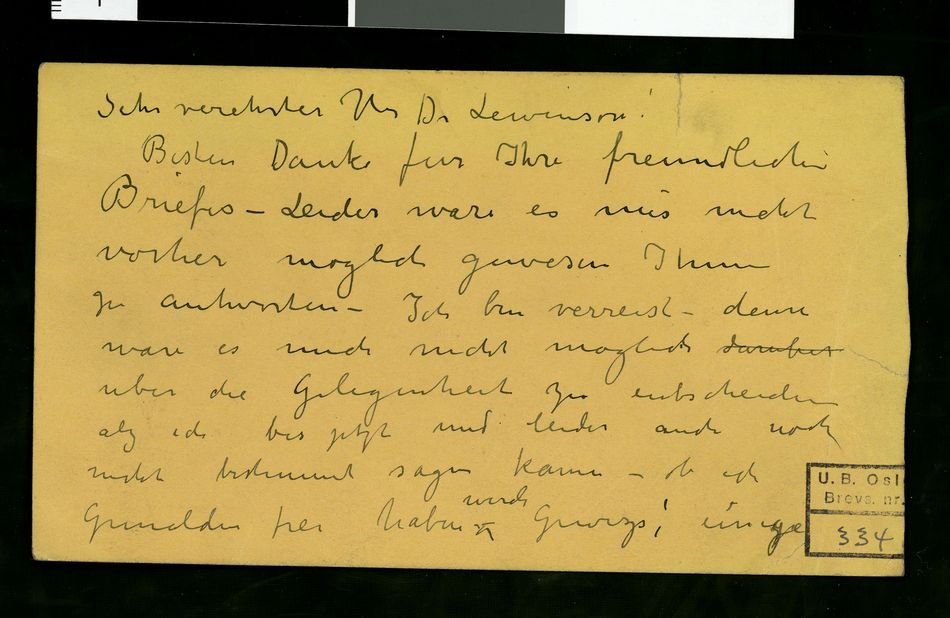 Sehr verehrter Herr Dr Lewinson!
Besten Danke fur Ihre freundlichen
Briefes – Leider ware es mir nicht
vorher moglich gewesen Ihnen
zu antworten – Ich bin verreist – denn
ware es mich nicht moglich daruber
uber die Gelegenheit zu entscheiden
als ich bis jetzt und leider auch noch
nicht bestimmt sagen kann – ob ich
Gemälden frei haben werde
U.B. Osl
Brevs. nr.
334